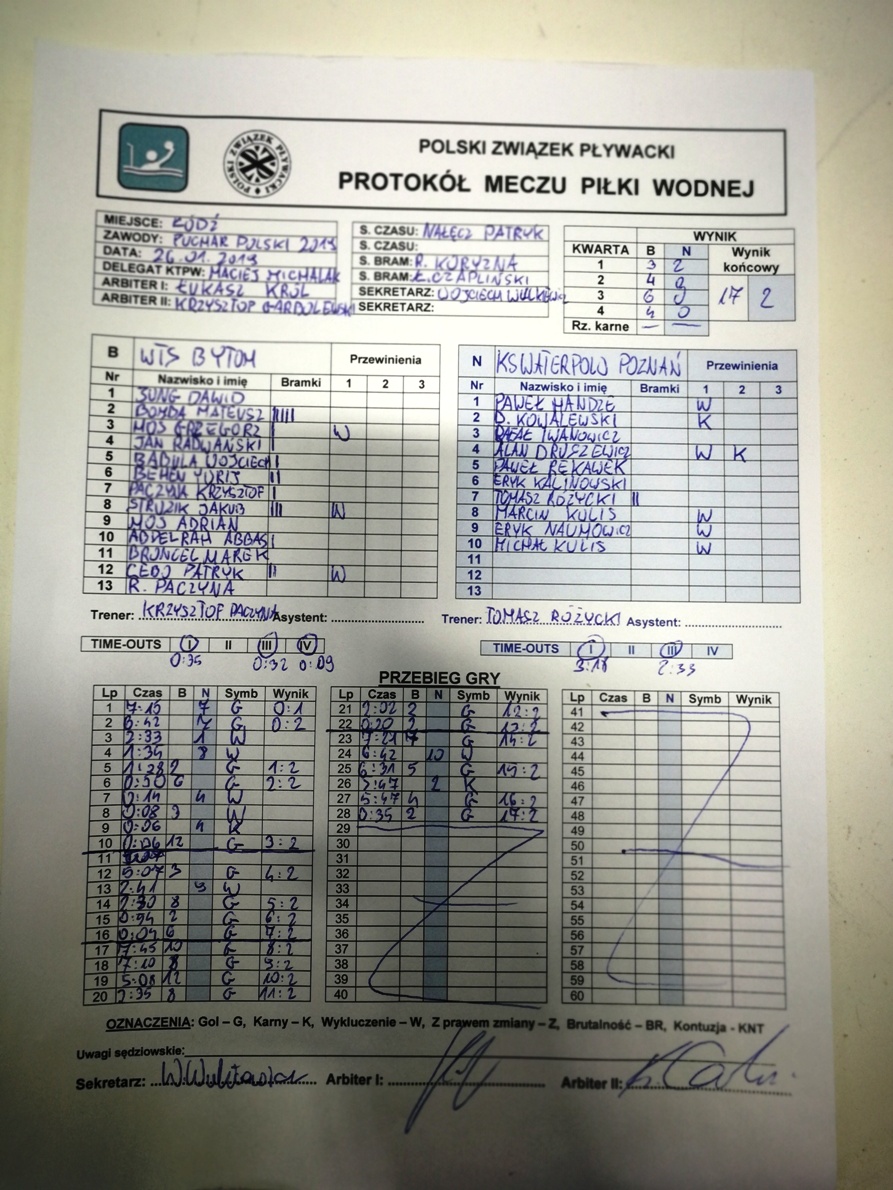 POLSKI ZWIĄZEK PŁYWACKI
POLSKI ZWIĄZEK PŁYWACKI
PROTOKÓŁ MECZU PIŁKI WODNEJ
MIEJSCE: ŁÓDŹ
ZAWODY: PUCHAR POLSKI 2019
DATA: 26.01.2019
DELEGAT KTPW: MACIEJ MICHALAK
ARBITER I: ŁUKASZ KRÓL
ARBITER II: KRZYSZTOF
S. CZASU: NAŁĘCZ PATRYK
S. CZASU:
S. BRAM: R. KORYZNA
S. BRAM: Ł. CZAPLIŃSKI
SEKRETARZ: WOJCIECH
SEKRETARZ:
WYNIK
KWARTA B N Wynik końcowy
1 3 2
2 4 0
3 6 0
4 4 0
17 2
Rz. karne — —
B WTS BYTOM Przewinienia
Nr Nazwisko i imię Bramki 1 2 3
1 JUNG DAWID
2 BOMBA MATEUSZ IIIII
3 MOS GRZEGORZ I W
4 JAN RADWAŃSKI I
5 BADULA WOJCIECH I
6 YURIJ II
7 PACZYNA KRZYSZTOF I
8 STRUZIK JAKUB III W
9 MOS ADRIAN
10 ABBAS I
11 MAREK
12 PATRYK II W
13 R. PACZYNA
N KS WATERPOLO POZNAŃ Przewinienia
Nr Nazwisko i imię Bramki 1 2 3
1 PAWEŁ W
2 D. KOWALEWSKI K
3 RAFAŁ IWANOWICZ
4 ALAN W K
5 PAWEŁ RĘKAWEK
6 ERYK KALINOWSKI
7 TOMASZ RÓŻYCKI II
8 MARCIN KULIS W
9 ERYK NAUMOWICZ W
10 MICHAŁ KULIS W
11
12
13
Trener: KRZYSZTOF PACZYNA Asystent:
Trener: TOMASZ RÓŻYCKI Asystent:
TIME-OUTS I II III IV
0:35 0:32 0:09
TIME-OUTS I II III IV
3:18 2:33
PRZEBIEG GRY
Lp Czas B N Symb Wynik
1 7:15 7 G 0:1
2 6:42 7 G 0:2
3 2:33 1 W
4 1:35 8 W
5 1:28 2 G 1:2
6 0:50 6 G 2:2
7 0:14 4 W
8 0:08 3 W
9 0:06 4 K
10 0:06 12 G 3:2
11
12 5:07 3 G 4:2
13 2:41 9 W
14 2:30 8 G 5:2
15 2 G 6:2
16 0:04 6 G 7:2
17 7:45 10 G 8:2
18 7:20 8 G 9:2
19 5:08 12 G 10:2
20 2:35 8 G 11:2
Lp Czas B N Symb Wynik
21 2:02 2 G 12:2
22 0:20 2 G 13:2
23 7:21 7 G 14:2
24 6:42 10 W
25 6:31 5 G 15:2
26 5:47 2 K
27 5:47 4 G 16:2
28 0:35 2 G 17:2
29
30
31
32
33
34
35
36
37
38
39
40
Lp Czas B N Symb Wynik
41
42
43
44
45
46
47
48
49
50
51
52
53
54
55
56
57
58
59
60
OZNACZENIA: Gol – G, Karny – K, Wykluczenie – W, Z prawem zmiany – Z, Brutalność – BR, Kontuzja - KNT
Uwagi sędziowskie:
Sekretarz: Arbiter I: Arbiter II: